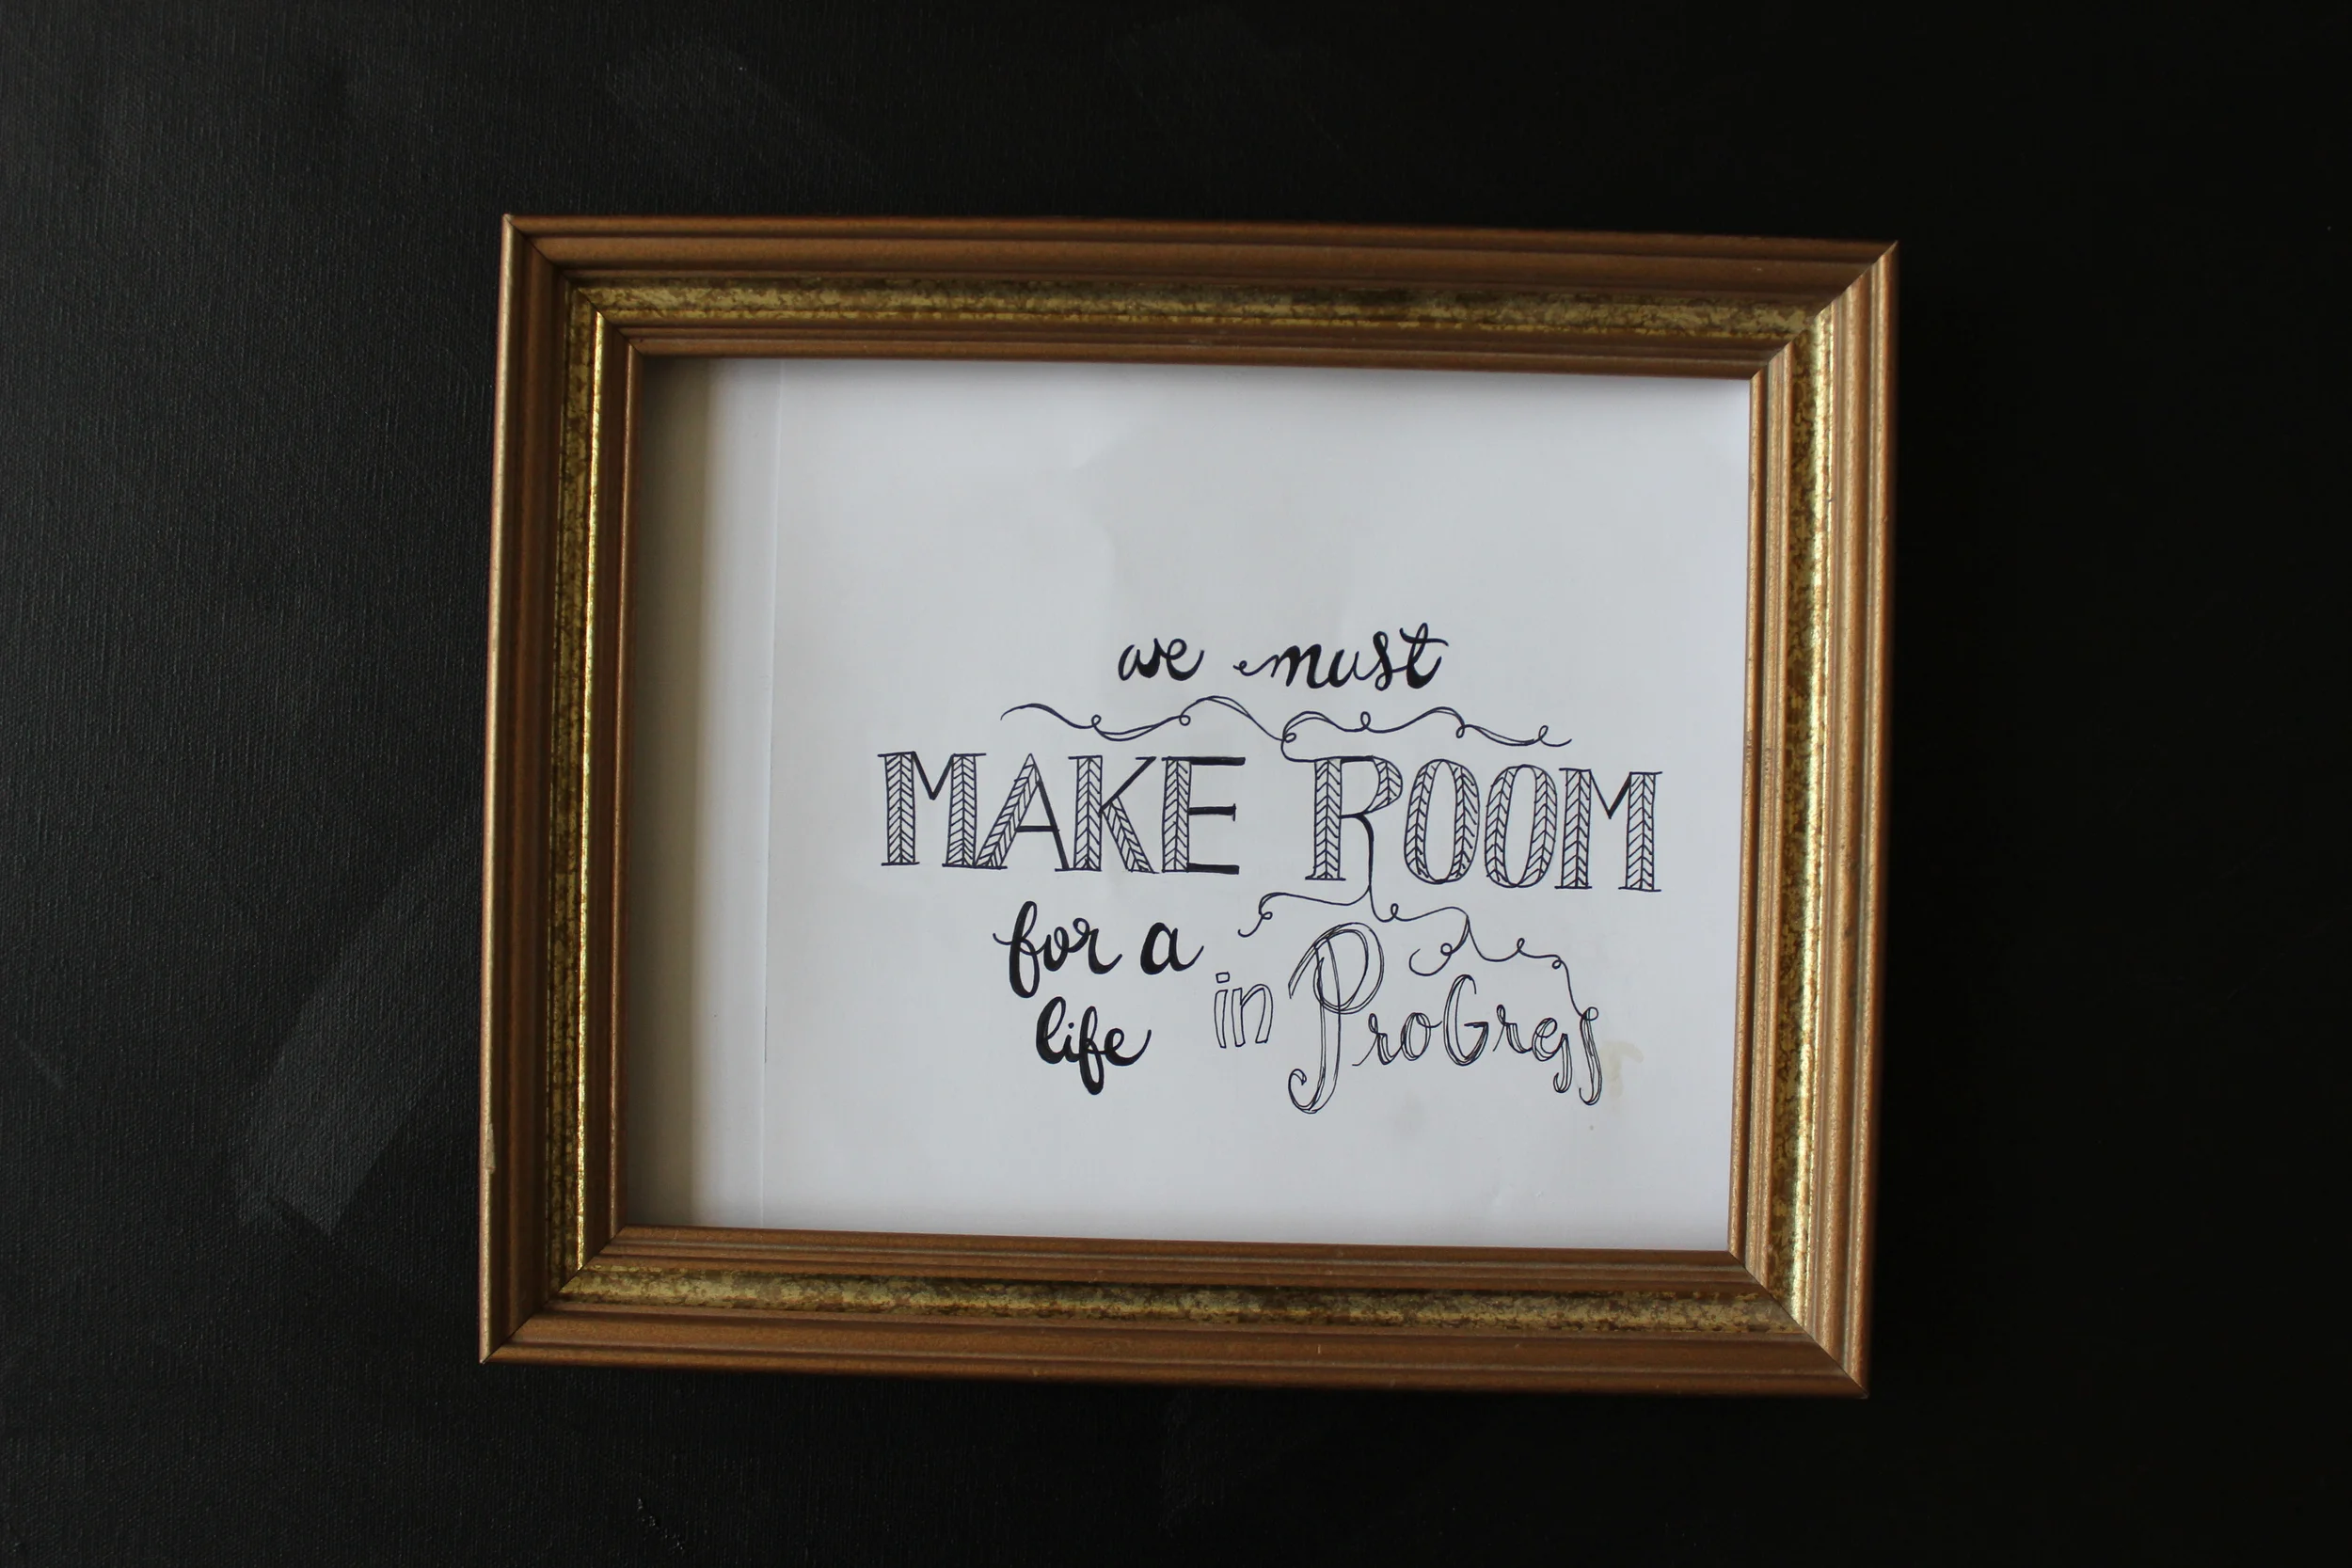 we must
MAKE ROOM
for a
life in ProGress